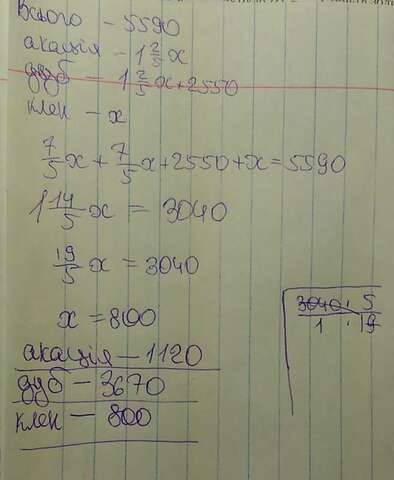 Всього - 5590
акація - 1 2/5 x
дуб - 1 2/5 x + 2550
клен - x
7/5 x + 7/5 x + 2550 + x = 5590
1 14/5 x = 3040
19/5 x = 3040
x = 800
акація - 1120
дуб - 3670
клен - 800
3040 · 5
1 · 19